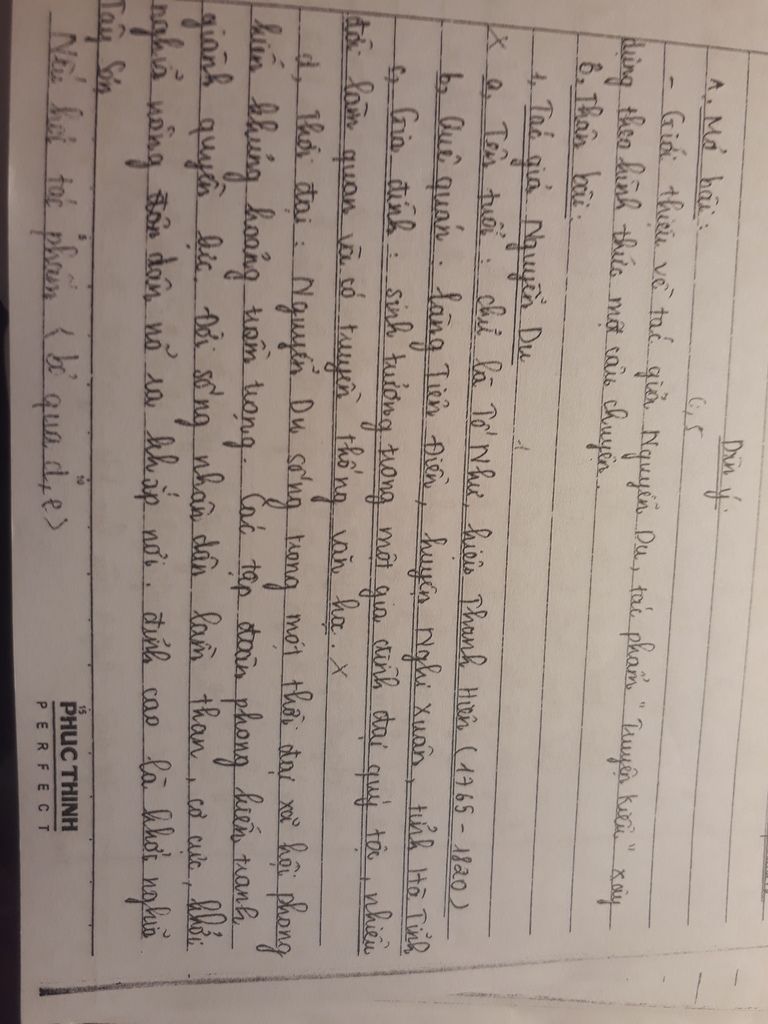 Dàn ý
A, Mở bài: 0,5
- Giới thiệu về tác giả Nguyễn Du, tác phẩm "Truyện Kiều" xây
dựng theo hình thức một câu chuyện.
B, Thân bài:
1, Tác giả Nguyễn Du 1
x a, Tên tuổi: chữ là Tố Như, hiệu Thanh Hiên (1765 - 1820)
b, Quê quán: làng Tiên Điền, huyện Nghi Xuân, tỉnh Hà Tĩnh
c, Gia đình: sinh trưởng trong một gia đình đại quý tộc, nhiều
đời làm quan và có truyền thống văn học. x
d, Thời đại: Nguyễn Du sống trong một thời đại xã hội phong
kiến khủng hoảng trầm trọng. Các tập đoàn phong kiến tranh
giành quyền lực. Đời sống nhân dân lầm than, cơ cực, khởi
nghĩa nông dân nổ ra khắp nơi. đỉnh cao là khởi nghĩa
Tây Sơn
Nếu hỏi tác phẩm (bỏ qua d, e)
5 10 15
PHUCTHINH
PERFECT